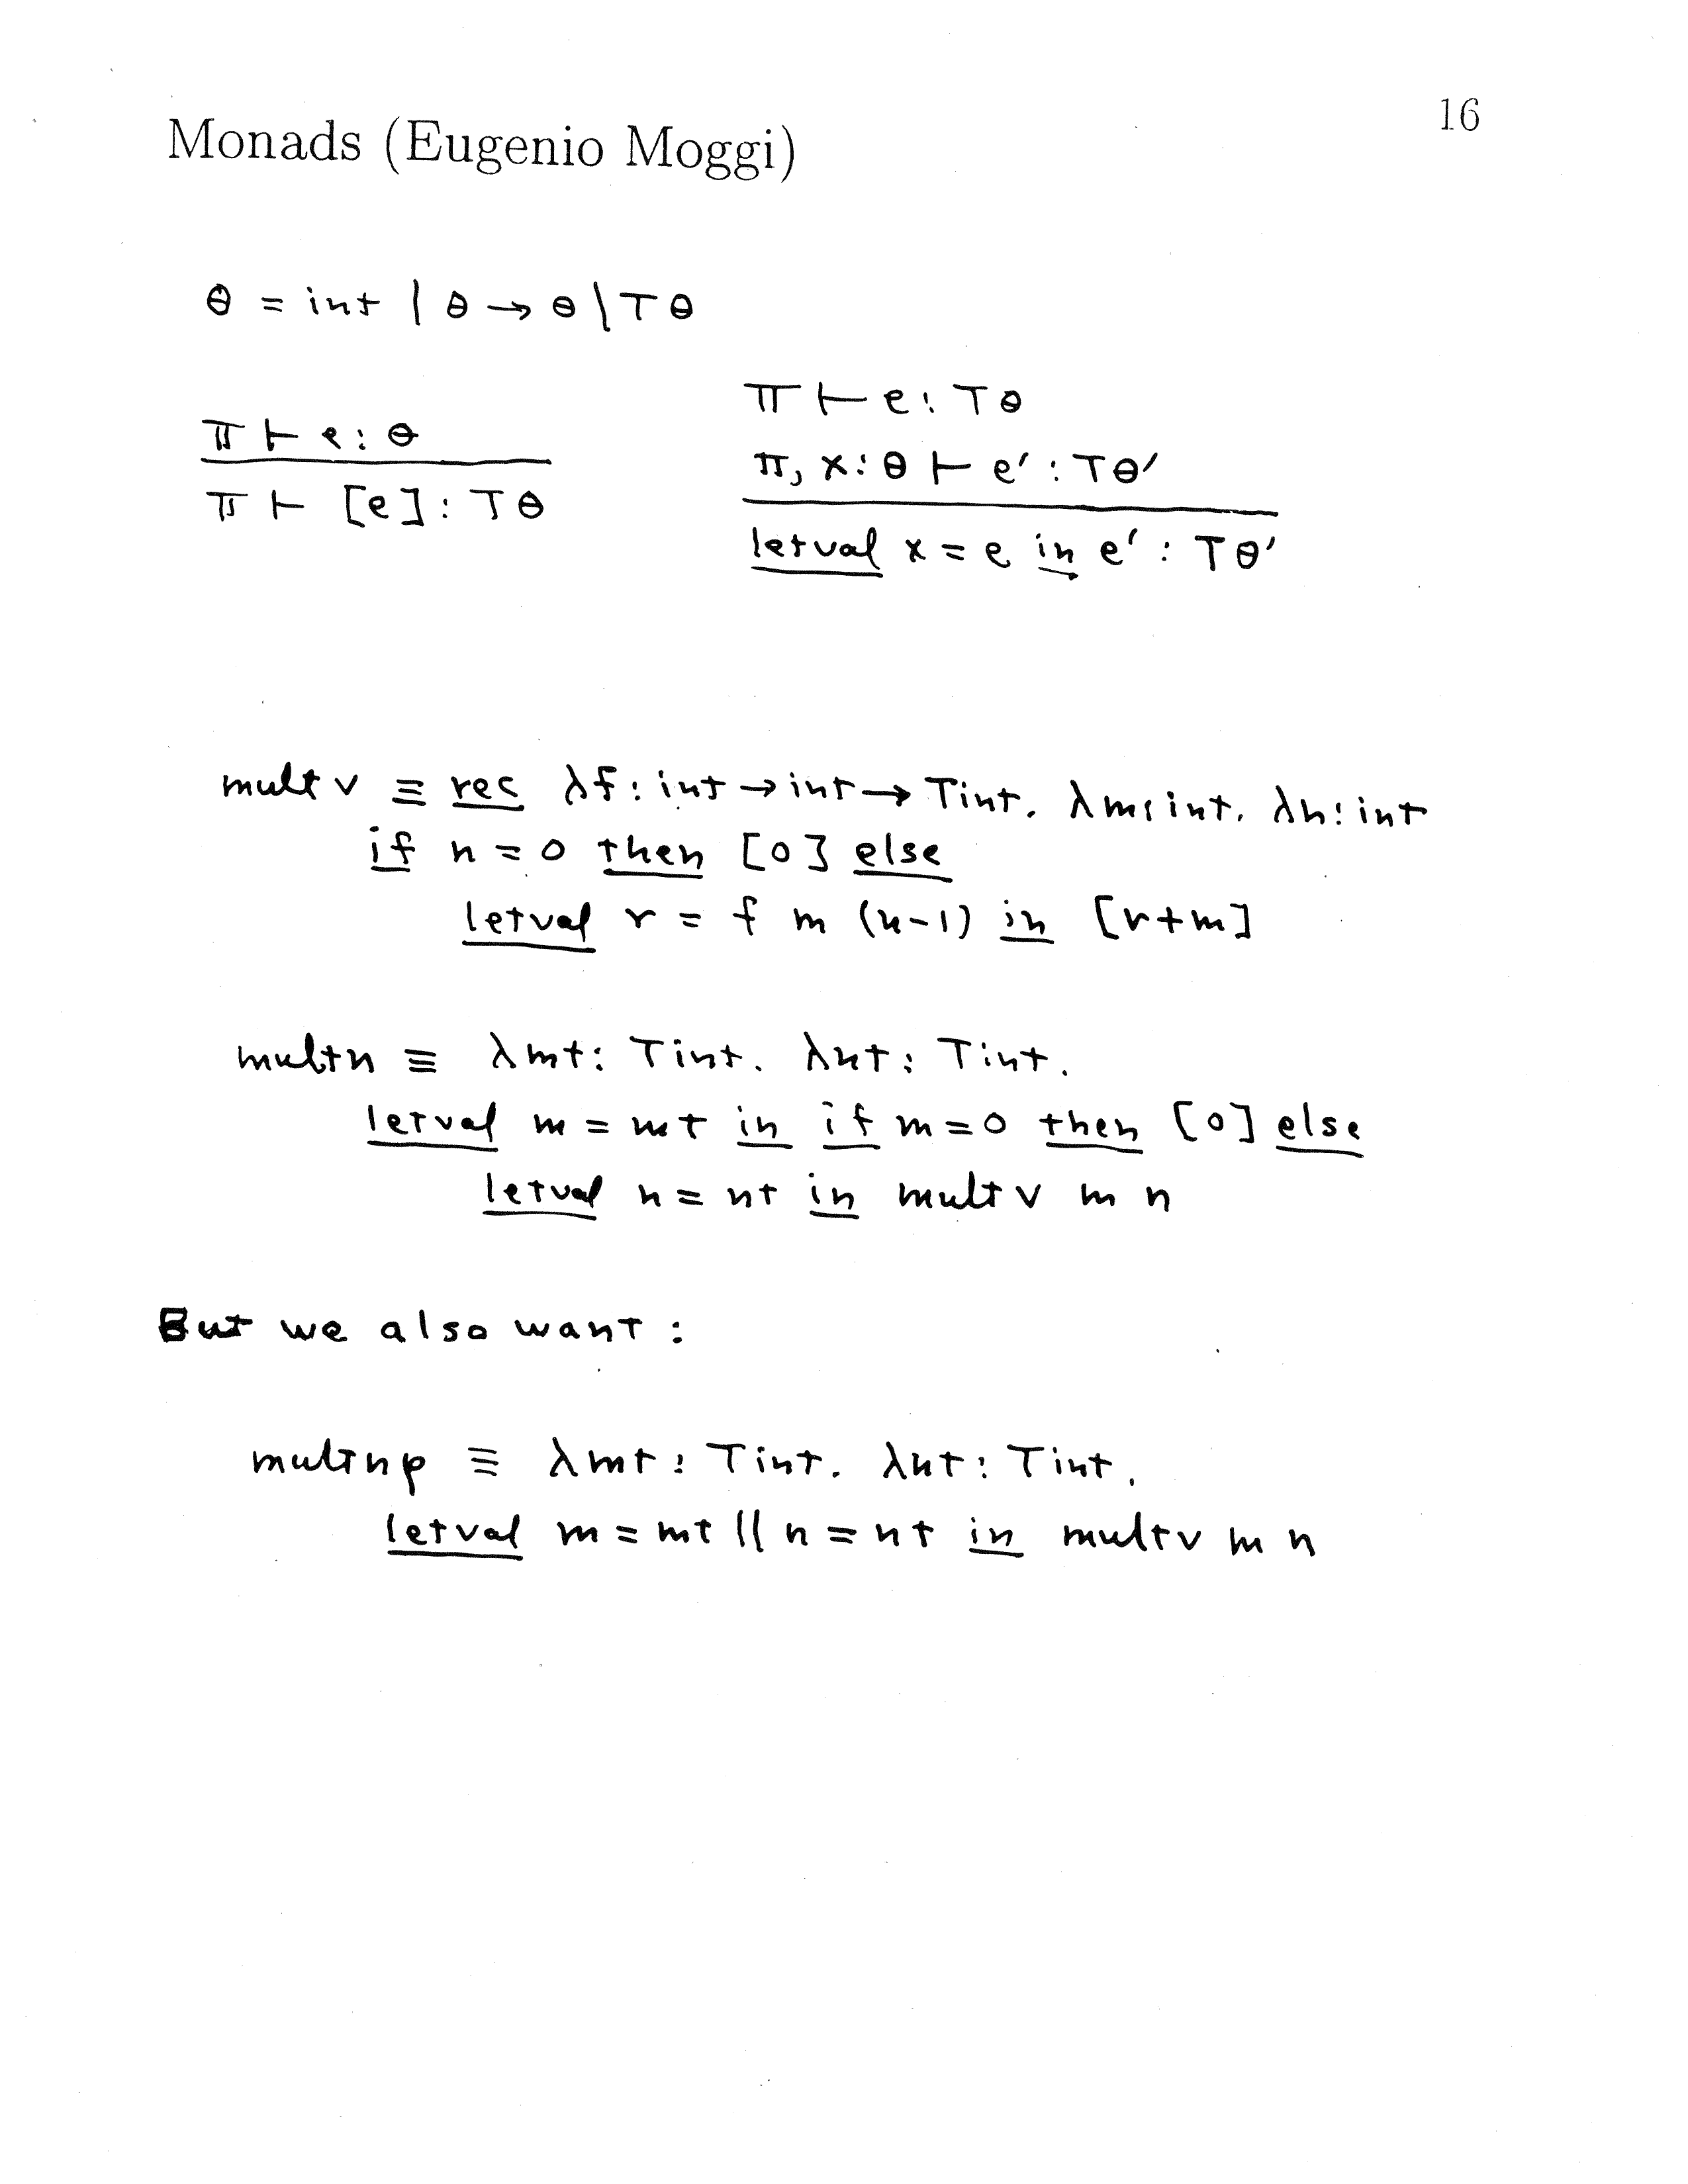 16
Monads (Eugenio Moggi)
θ = int | θ → θ | T θ
π ⊢ e : θ
π ⊢ [e] : T θ
π ⊢ e : T θ
π, x : θ ⊢ e' : T θ'
letval x = e in e' : T θ'
multv ≡ rec λf : int → int → T int. λm : int. λn : int
if n = 0 then [0] else
letval r = f m (n-1) in [r+m]
multn ≡ λmt : T int. λnt : T int.
letval m = mt in if m = 0 then [0] else
letval n = nt in multv m n
But we also want :
multnp ≡ λmt : T int. λnt : T int.
letval m = mt || n = nt in multv m n